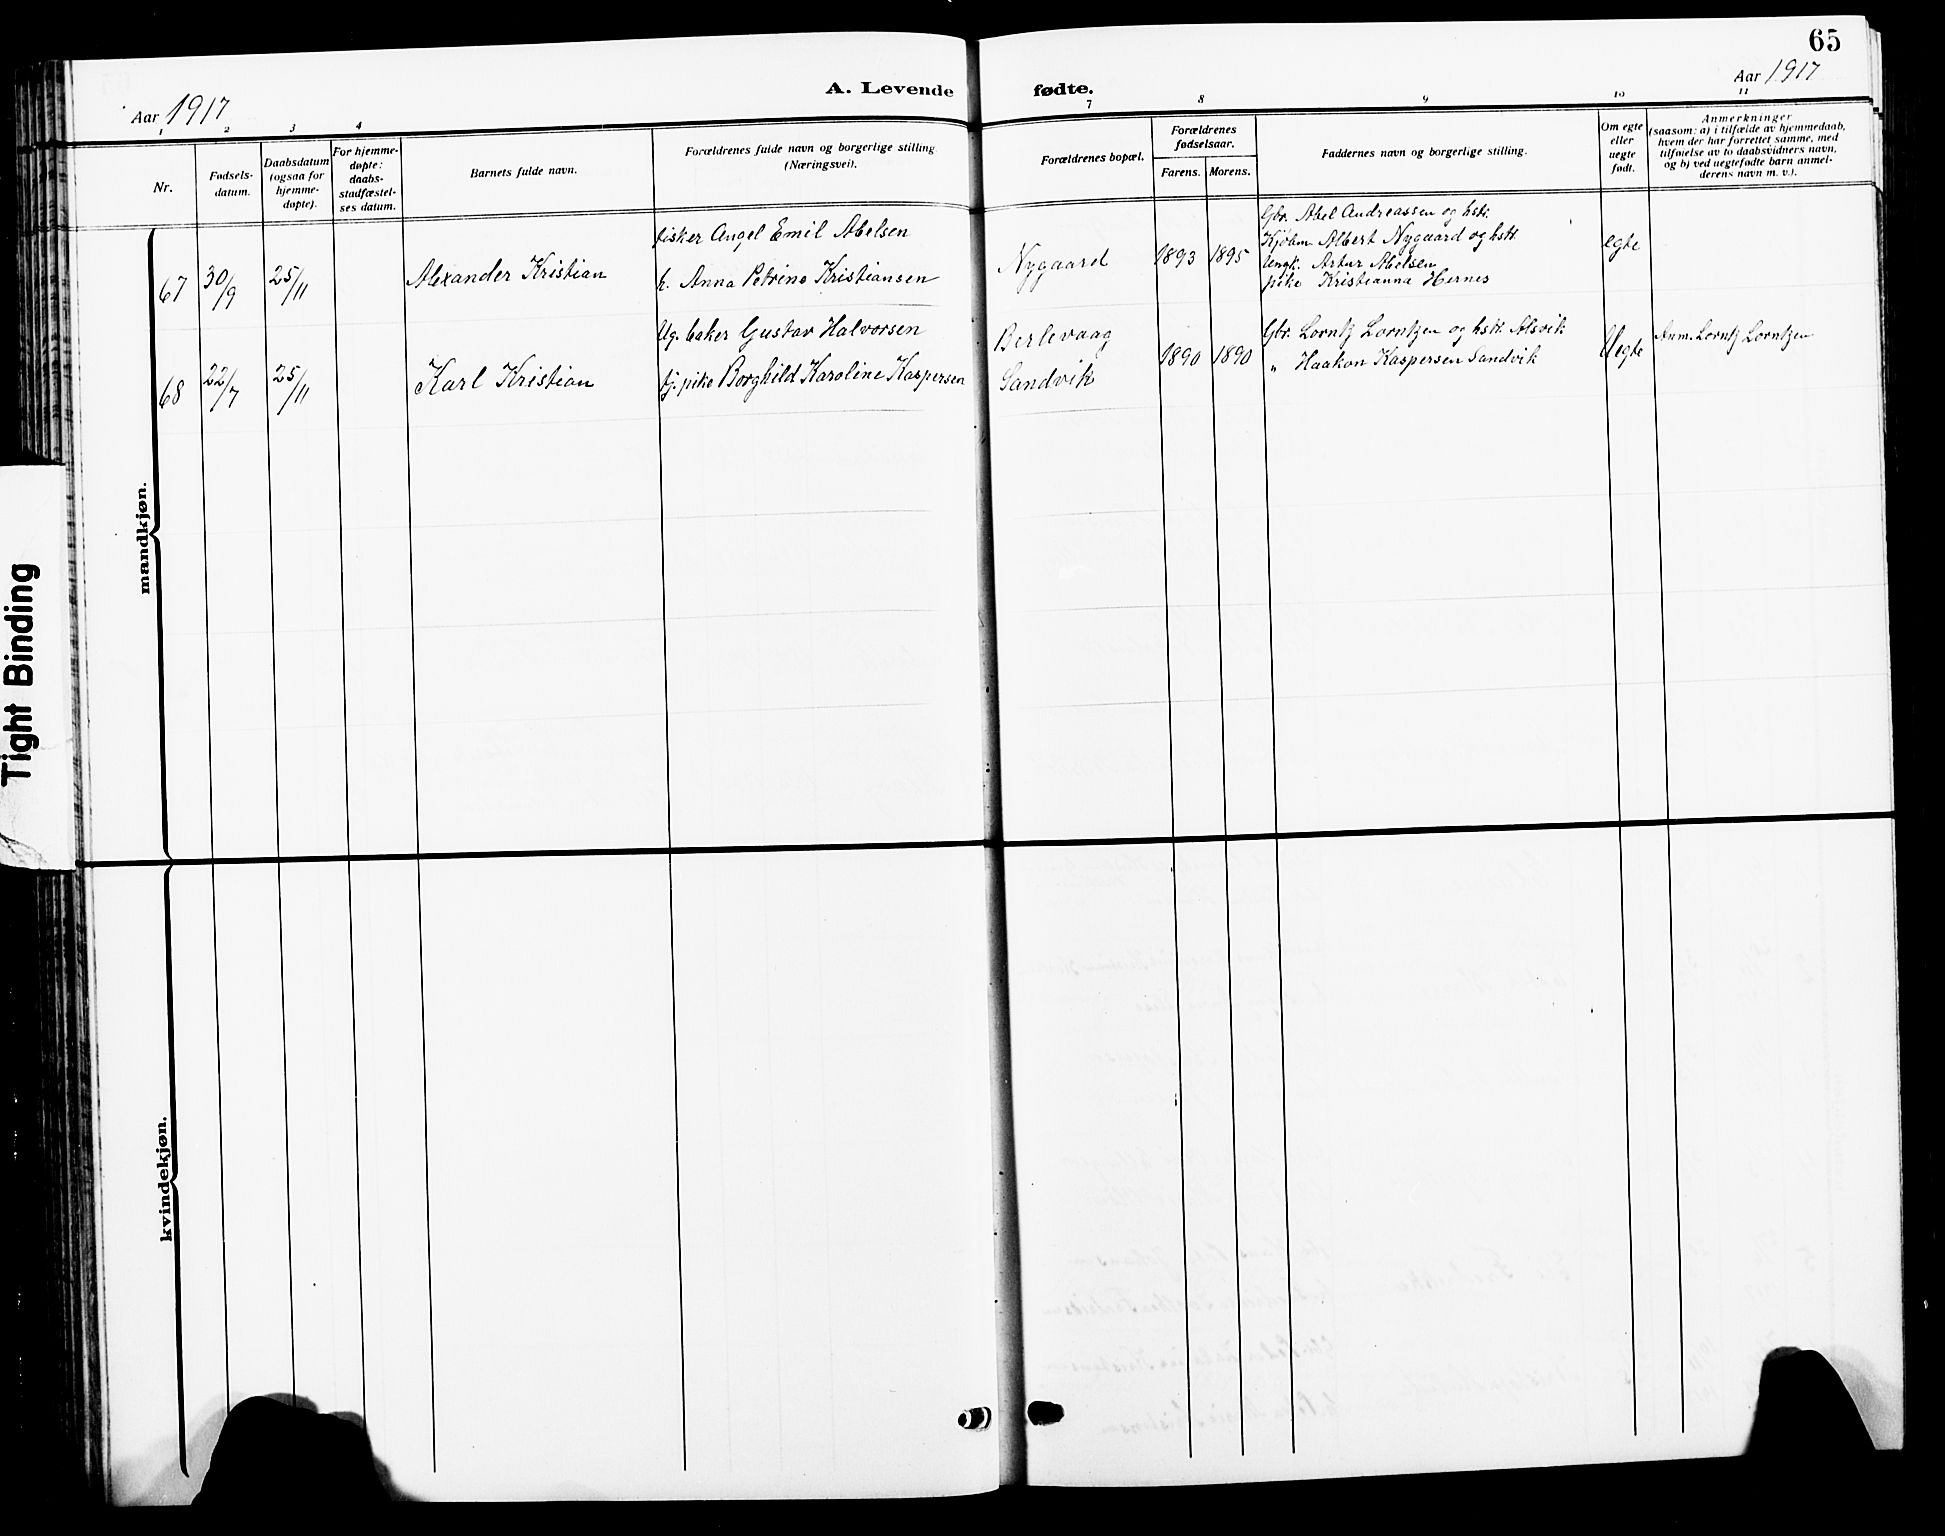 65
A. Levende fødte.
Aar 1917
Aar 1917
1 2 3 4 7 8 9 10 11
Nr.
Fødsels-
datum.
Daabsdatum
(ogsaa for
hjemme-
døpte).
For hjemme-
døpte:
daabs-
stadfæstel-
ses datum.
Barnets fulde navn.
Forældrenes fulde navn og borgerlige stilling
(Næringsvei).
Forældrenes bopæl.
Forældrenes
fødselsaar.
Farens. Morens.
Faddernes navn og borgerlige stilling.
Om egte
eller
uegte
født.
Anmerkninger
(saasom: a) i tilfælde av hjemmedaab,
hvem der har forrettet samme, med
tilføielse av to daabsvidners navn,
og b) ved uegtefødte barn anmel-
derens navn m. v.).
mandkjøn.
67 30/9 25/11 Alexander Kristian
fisker Angel Emil Abelsen
h. Anna Petrine Kristiansen
Nygaard
1893 1895
Gbr. Abel Andreassen og hstr.
Kjøbm. Albert Nygaard og hstr.
Ungk. Artur Abelsen
pike Kristianna Hernes
egte
68 22/7 25/11 Karl Kristian
Ug. baker Gustav Halvorsen
tj. pike Borghild Karoline Kaspersen
Berlevaag
Sandvik
1890 1890
Gbr. Lorntz Lorntzen og hstr. Alsvik
„ Haakon Kaspersen Sandvik
Uegte
Anm. Lorntz Lorntzen
kvindekjøn.
Tight Binding